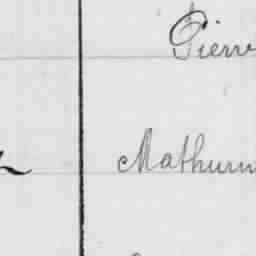 Pierr
Mathurin